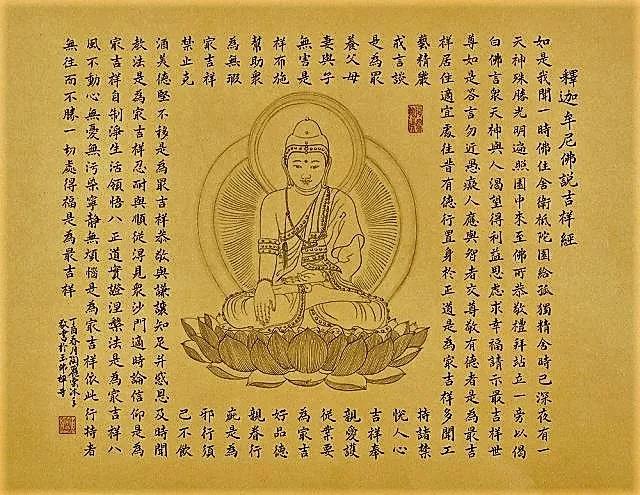 釋迦牟尼佛說吉祥經
如是我聞一時佛住舍衛祇陀園給孤獨精舍時已深夜有一
天神殊勝光明遍照園中來至佛所恭敬禮拜站立一旁以偈
白佛言眾天神與人渴望得利益思慮求幸福請示最吉祥世
尊如是答言勿近愚癡人應與智者交尊敬有德者是為最吉
祥居住適宜處往昔有德行置身於正道是為最吉祥多聞工
藝精嚴持諸禁
戒言談悅人心
是為最吉祥奉
養父母親愛護
妻與子從業要
無害是為最吉
祥布施好品德
幫助眾親眷行
為無瑕疵是為
最吉祥邪行須
禁止克己不飲
酒美德堅不移是為最吉祥恭敬與謙讓知足并感恩及時聞
教法是為最吉祥忍耐與順從得見眾沙門適時論信仰是為
最吉祥自制淨生活領悟八正道實證涅槃法是為最吉祥八
風不動心無憂無污染寧靜無煩惱是為最吉祥依此行持者
無往而不勝一切處得福是為最吉祥
丁酉春月
敬書於玉佛禪寺